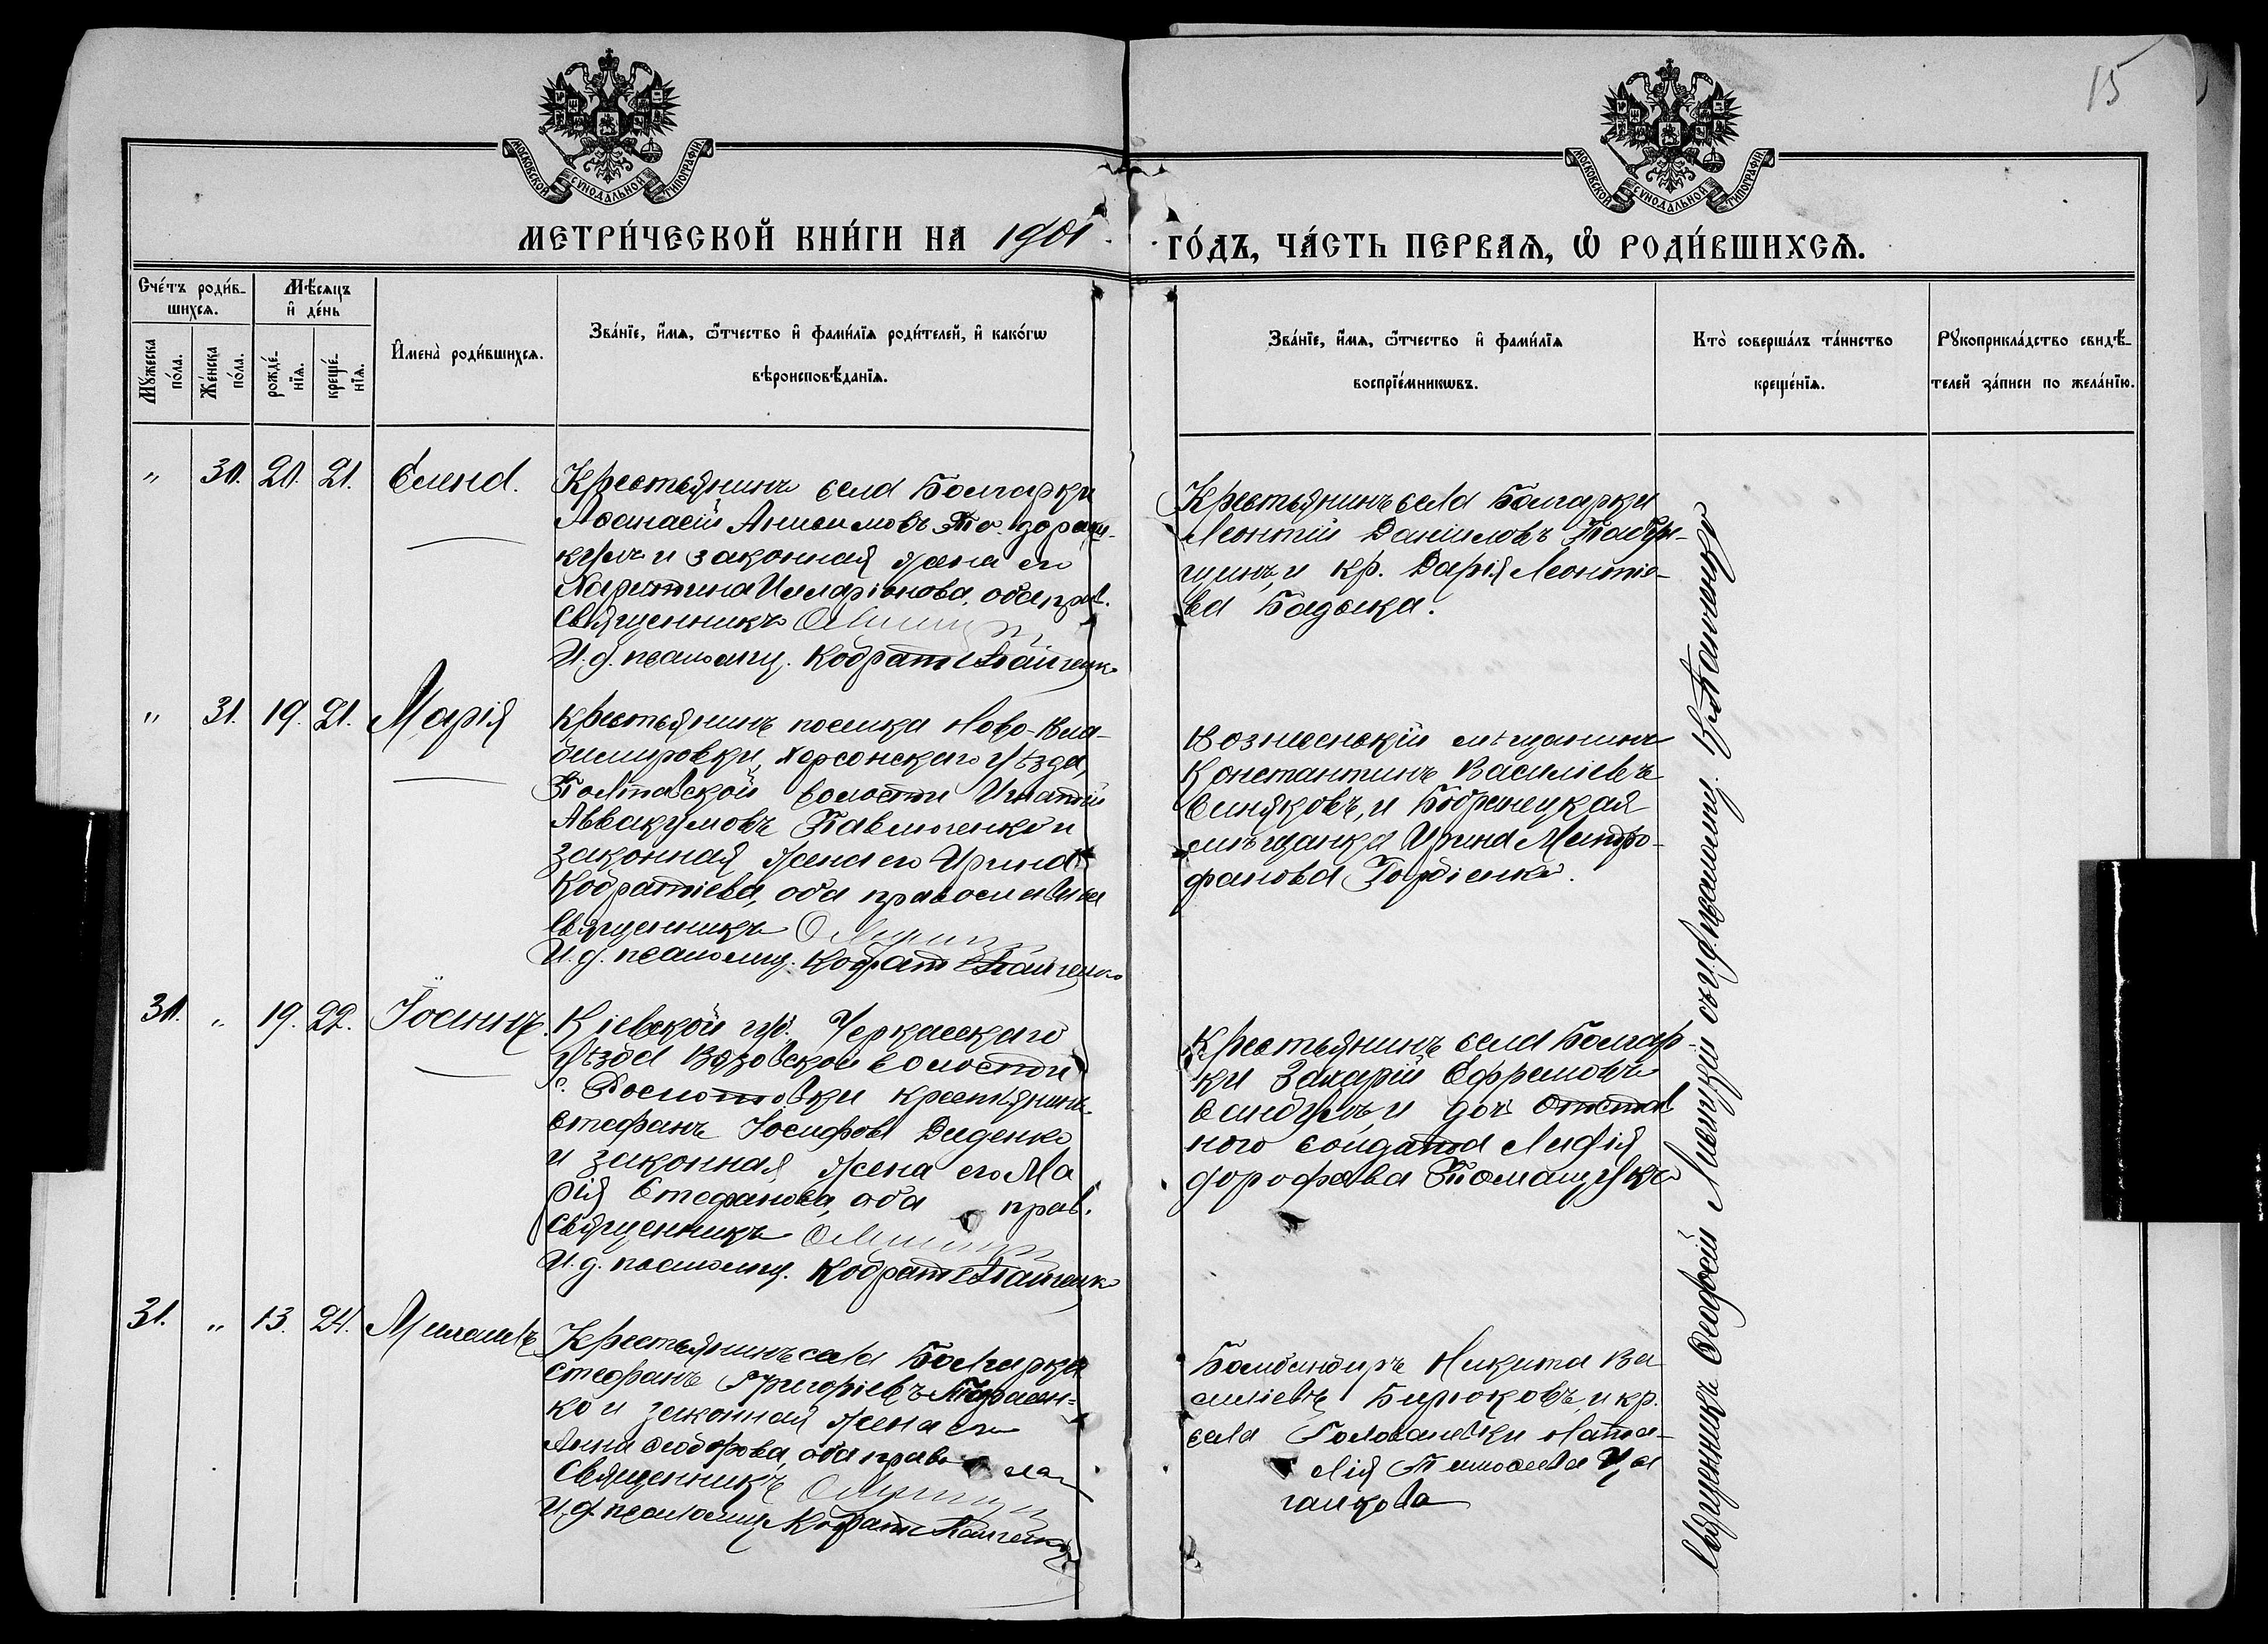 15
МОСКОВСКОЙ СѴНОДАЛЬНОЙ ТИПОГРАФІИ
МОСКОВСКОЙ СѴНОДАЛЬНОЙ ТИПОГРАФІИ
МЕТРИ́ЧЕСКОЙ КНИ́ГИ НА 1901 ГО́ДЪ, ЧА́СТЬ ПЕРВАЯ, Ѡ РОДИ́ВШИХСЯ.
Сче́тъ роди́в-
шихся.
Мѣ́сяцъ
и де́нь
Мꙋ́жеска по́ла.
Же́нска по́ла.
рожде́-
нїя.
креще́-
нїя.
Имена̀ роди́вшихся.
Зва́нїе, и́мя, ѻ́тчество и фами́лїя роди́телей, и како́гѡ
вѣроисповѣ́данїя.
Зва́нїе, и́мя, ѻ́тчество и фами́лїя
воспрїе́мникѡвъ.
Кто̀ соверша́лъ та́инство
креще́нїя.
Рꙋкоприкла́дство свидѣ́-
телей за́писи по жела́нїю.
" 30. 20. 21. Елена.
Крестьянинъ села Болгарки
Аѳанасій Анисимовъ
и законная жена его
Харитина Илларіонова, оба прав.
Священникъ
И. д. псаломщ. Кодрат
Крестьянинъ села Болгарки
Леонтій Даниловъ
и кр. Дарія Леонтіе-
ва
" 31. 19. 21. Марія
Крестьянинъ поселка Ново-Вла-
димировки, Херсонскаго уѣзда,
Полтавской волости Игнатій
Аввакумовъ Павлюченко и
законная жена его Ирина
Кодратіева, оба православные
Священникъ
И. д. псаломщ. Кодрат
Вознесенскій мѣщанинъ
Константинъ Василіевъ
Синяковъ, и Бобринецкая
мѣщанка Ирина Митро-
фанова Гордіенко.
30. " 19. 22. Іоаннъ.
Кіевской губ. Черкасскаго
уѣзда Вязовской волости
с. крестьянинъ
Стефанъ Іосифовъ Диденко
и законная жена его Ма
рія Стефанова, оба прав.
Священникъ
И. д. псаломщ. Кодрат
Крестьянинъ села Болгар-
ки Захарій Ефремовъ
и дочь отстав
ного солдата Лидія
Дорофеева Томащукъ
31. " 13. 24. Михаилъ
Крестьянинъ села Болгарки
Стефанъ Григоріевъ Тарасен-
ко и законная жена его
Анна Ѳеодорова, оба православ
Священникъ
И. д. псаломщ. Кодрат
Бомбандиръ Никита Ва
силіевъ Бирюковъ, и кр.
села Головановки Ната-
лія Тимоѳеева Ца
ганкова
Священникъ Ѳеофилъ съ и. д. псаломщ.